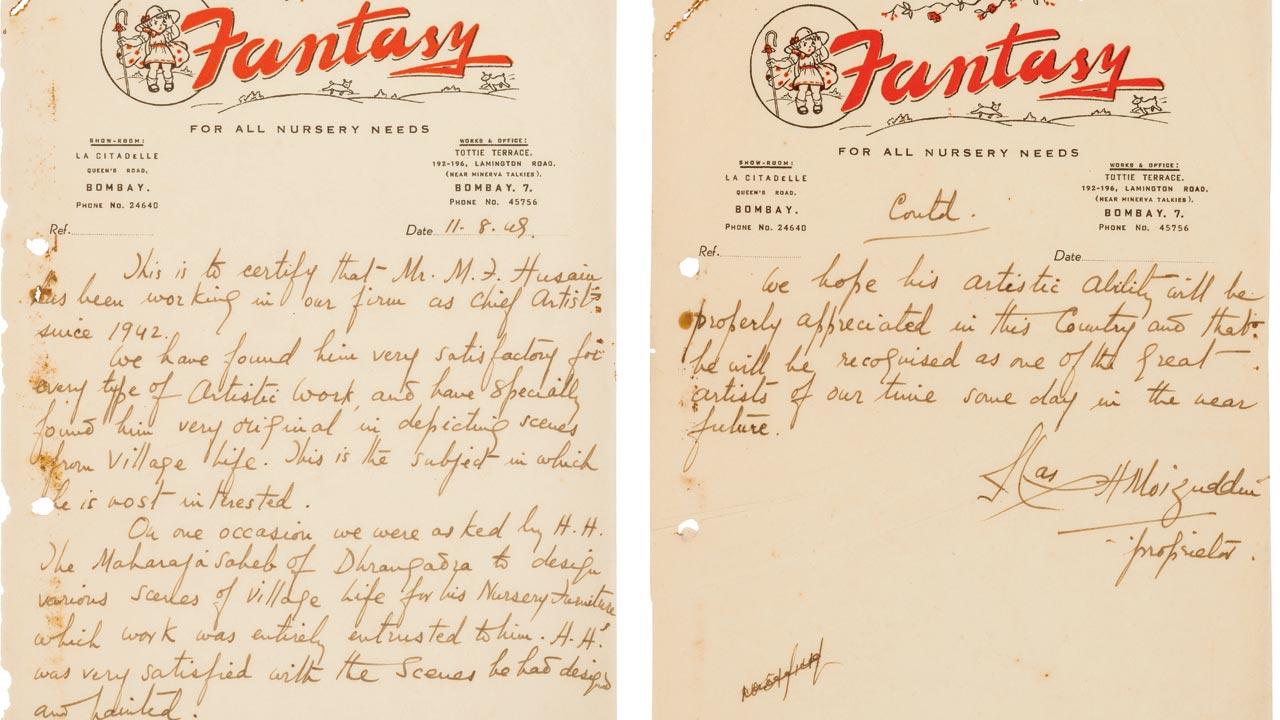 Fantasy
FOR ALL NURSERY NEEDS
SHOW-ROOM:
LA CITADELLE
QUEEN'S ROAD,
BOMBAY.
PHONE No. 24640
WORKS & OFFICE:
TOTTIE TERRACE.
192-196, LAMINGTON ROAD,
(NEAR MINERVA TALKIES),
BOMBAY. 7.
PHONE No. 45756
Ref.
Date 11. 8. 48.
This is to certify that Mr. M. F. Husain
has been working in our firm as chief Artist
since 1942.
We have found him very satisfactory for
every type of Artistic work, and have specially
found him very original in depicting scenes
from Village life. This is the subject in which
he is most interested.
On one occasion we were asked by H. H.
The Maharaja Saheb of Dhrangadra to design
various scenes of village life for his Nursery Furniture
which work was entirely entrusted to him. H. H.
was very satisfied with the Scenes he had design
and painted.
Fantasy
FOR ALL NURSERY NEEDS
SHOW-ROOM:
LA CITADELLE
QUEEN'S ROAD,
BOMBAY.
PHONE No. 24640
WORKS & OFFICE:
TOTTIE TERRACE.
192-196, LAMINGTON ROAD,
(NEAR MINERVA TALKIES),
BOMBAY. 7.
PHONE No. 45756
Contd.
Ref.
Date
We hope his artistic ability will be
properly appreciated in this Country and that
he will be recognised as one of the great
artists of our time some day in the near
future.
H Moizuddin
proprietor.